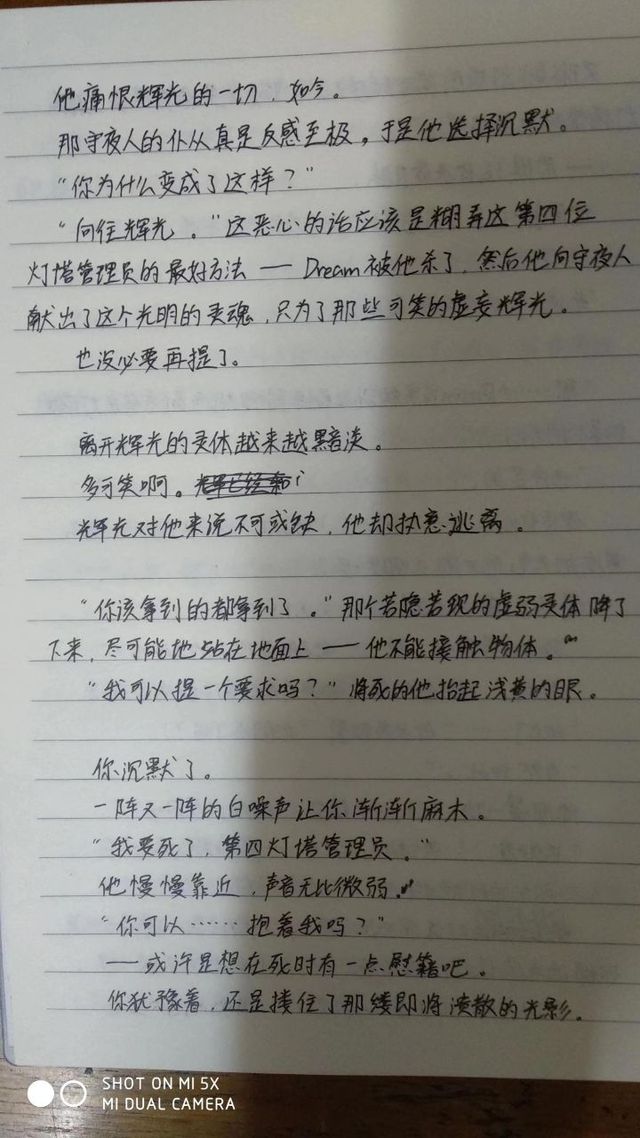 他痛恨辉光的一切，如今。
那守夜人的仆从真是反感至极，于是他选择沉默。
“你为什么变成了这样？”
“向往辉光。”这恶心的话应该是糊弄这第四位
灯塔管理员的最好方法——Dream被他杀了，然后他向守夜人
献出了这个光明的灵魂，只为了那些可笑的虚妄辉光。
也没必要再提了。
离开辉光的灵体越来越黯淡。
多可笑啊。
辉光对他来说不可或缺，他却执意逃离。
“你该拿到的都拿到了。”那个若隐若现的虚弱灵体降了
下来，尽可能地站在地面上——他不能接触物体。
“我可以提一个要求吗？”将死的他抬起浅黄的眼。
你沉默了。
一阵又一阵的白噪声让你渐渐麻木。
“我要死了，第四灯塔管理员。”
他慢慢靠近，声音无比微弱。
“你可以……抱着我吗？”
——或许是想在死时有一点慰籍吧。
你犹豫着，还是搂住了那缕即将溃散的光影。
SHOT ON MI 5X
MI DUAL CAMERA